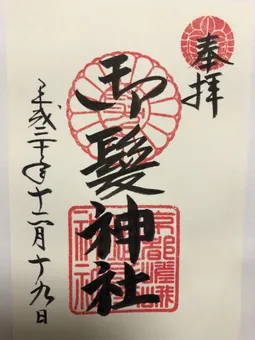 奉拝
御髪神社
京都嵯峨
平成二十年十二月十九日